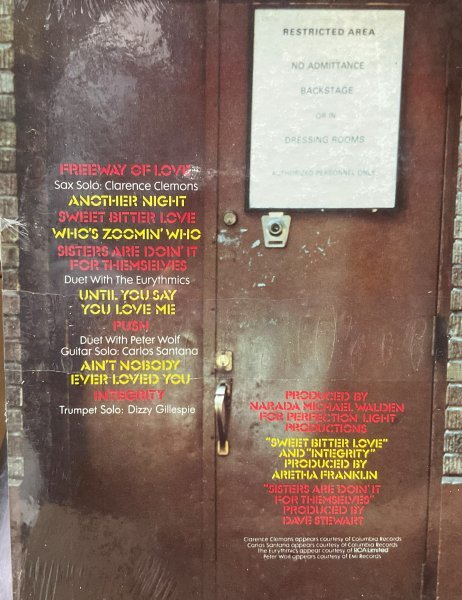 RESTRICTED AREA
NO ADMITTANCE
BACKSTAGE
OR IN
DRESSING ROOMS
AUTHORIZED PERSONNEL ONLY
FREEWAY OF LOVE
Sax Solo: Clarence Clemons
ANOTHER NIGHT
SWEET BITTER LOVE
WHO'S ZOOMIN' WHO
SISTERS ARE DOIN' IT
FOR THEMSELVES
Duet With The Eurythmics
UNTIL YOU SAY
YOU LOVE ME
PUSH
Duet With Peter Wolf
Guitar Solo: Carlos Santana
AIN'T NOBODY
EVER LOVED YOU
INTEGRITY
Trumpet Solo: Dizzy Gillespie
PRODUCED BY
NARADA MICHAEL WALDEN
FOR PERFECTION LIGHT
PRODUCTIONS
"SWEET BITTER LOVE"
AND "INTEGRITY"
PRODUCED BY
ARETHA FRANKLIN
"SISTERS ARE DOIN' IT
FOR THEMSELVES"
PRODUCED BY
DAVE STEWART
Clarence Clemons appears courtesy of Columbia Records
Carlos Santana appears courtesy of Columbia Records
The Eurythmics appear courtesy of RCA Limited
Peter Wolf appears courtesy of EMI Records